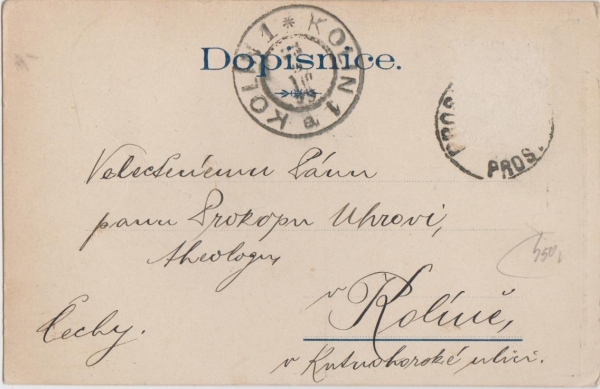 Dopisnice.
KOLÍN 1 * KOLIN 1
PROS
PROS.
Velectěnému Pánu
panu Prokopu Uhrovi,
theologu
v Kolíně,
Čechy.
v Kutnohorské ulici.